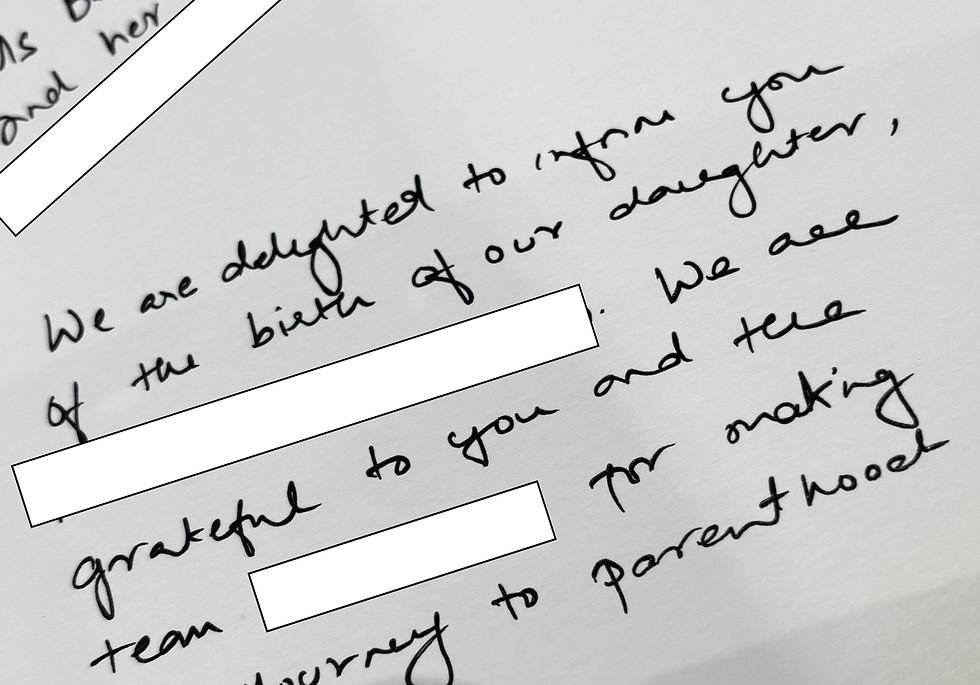 and her
We are delighted to inform you
of the birth of our daughter,
. We are
grateful to you and the
team for making
journey to parenthood